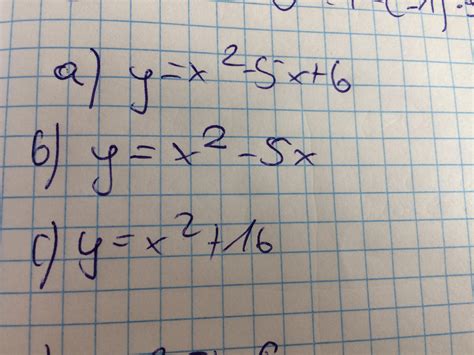 а) y=x²-5x+6
б) y=x²-5x
с) y=x²+16